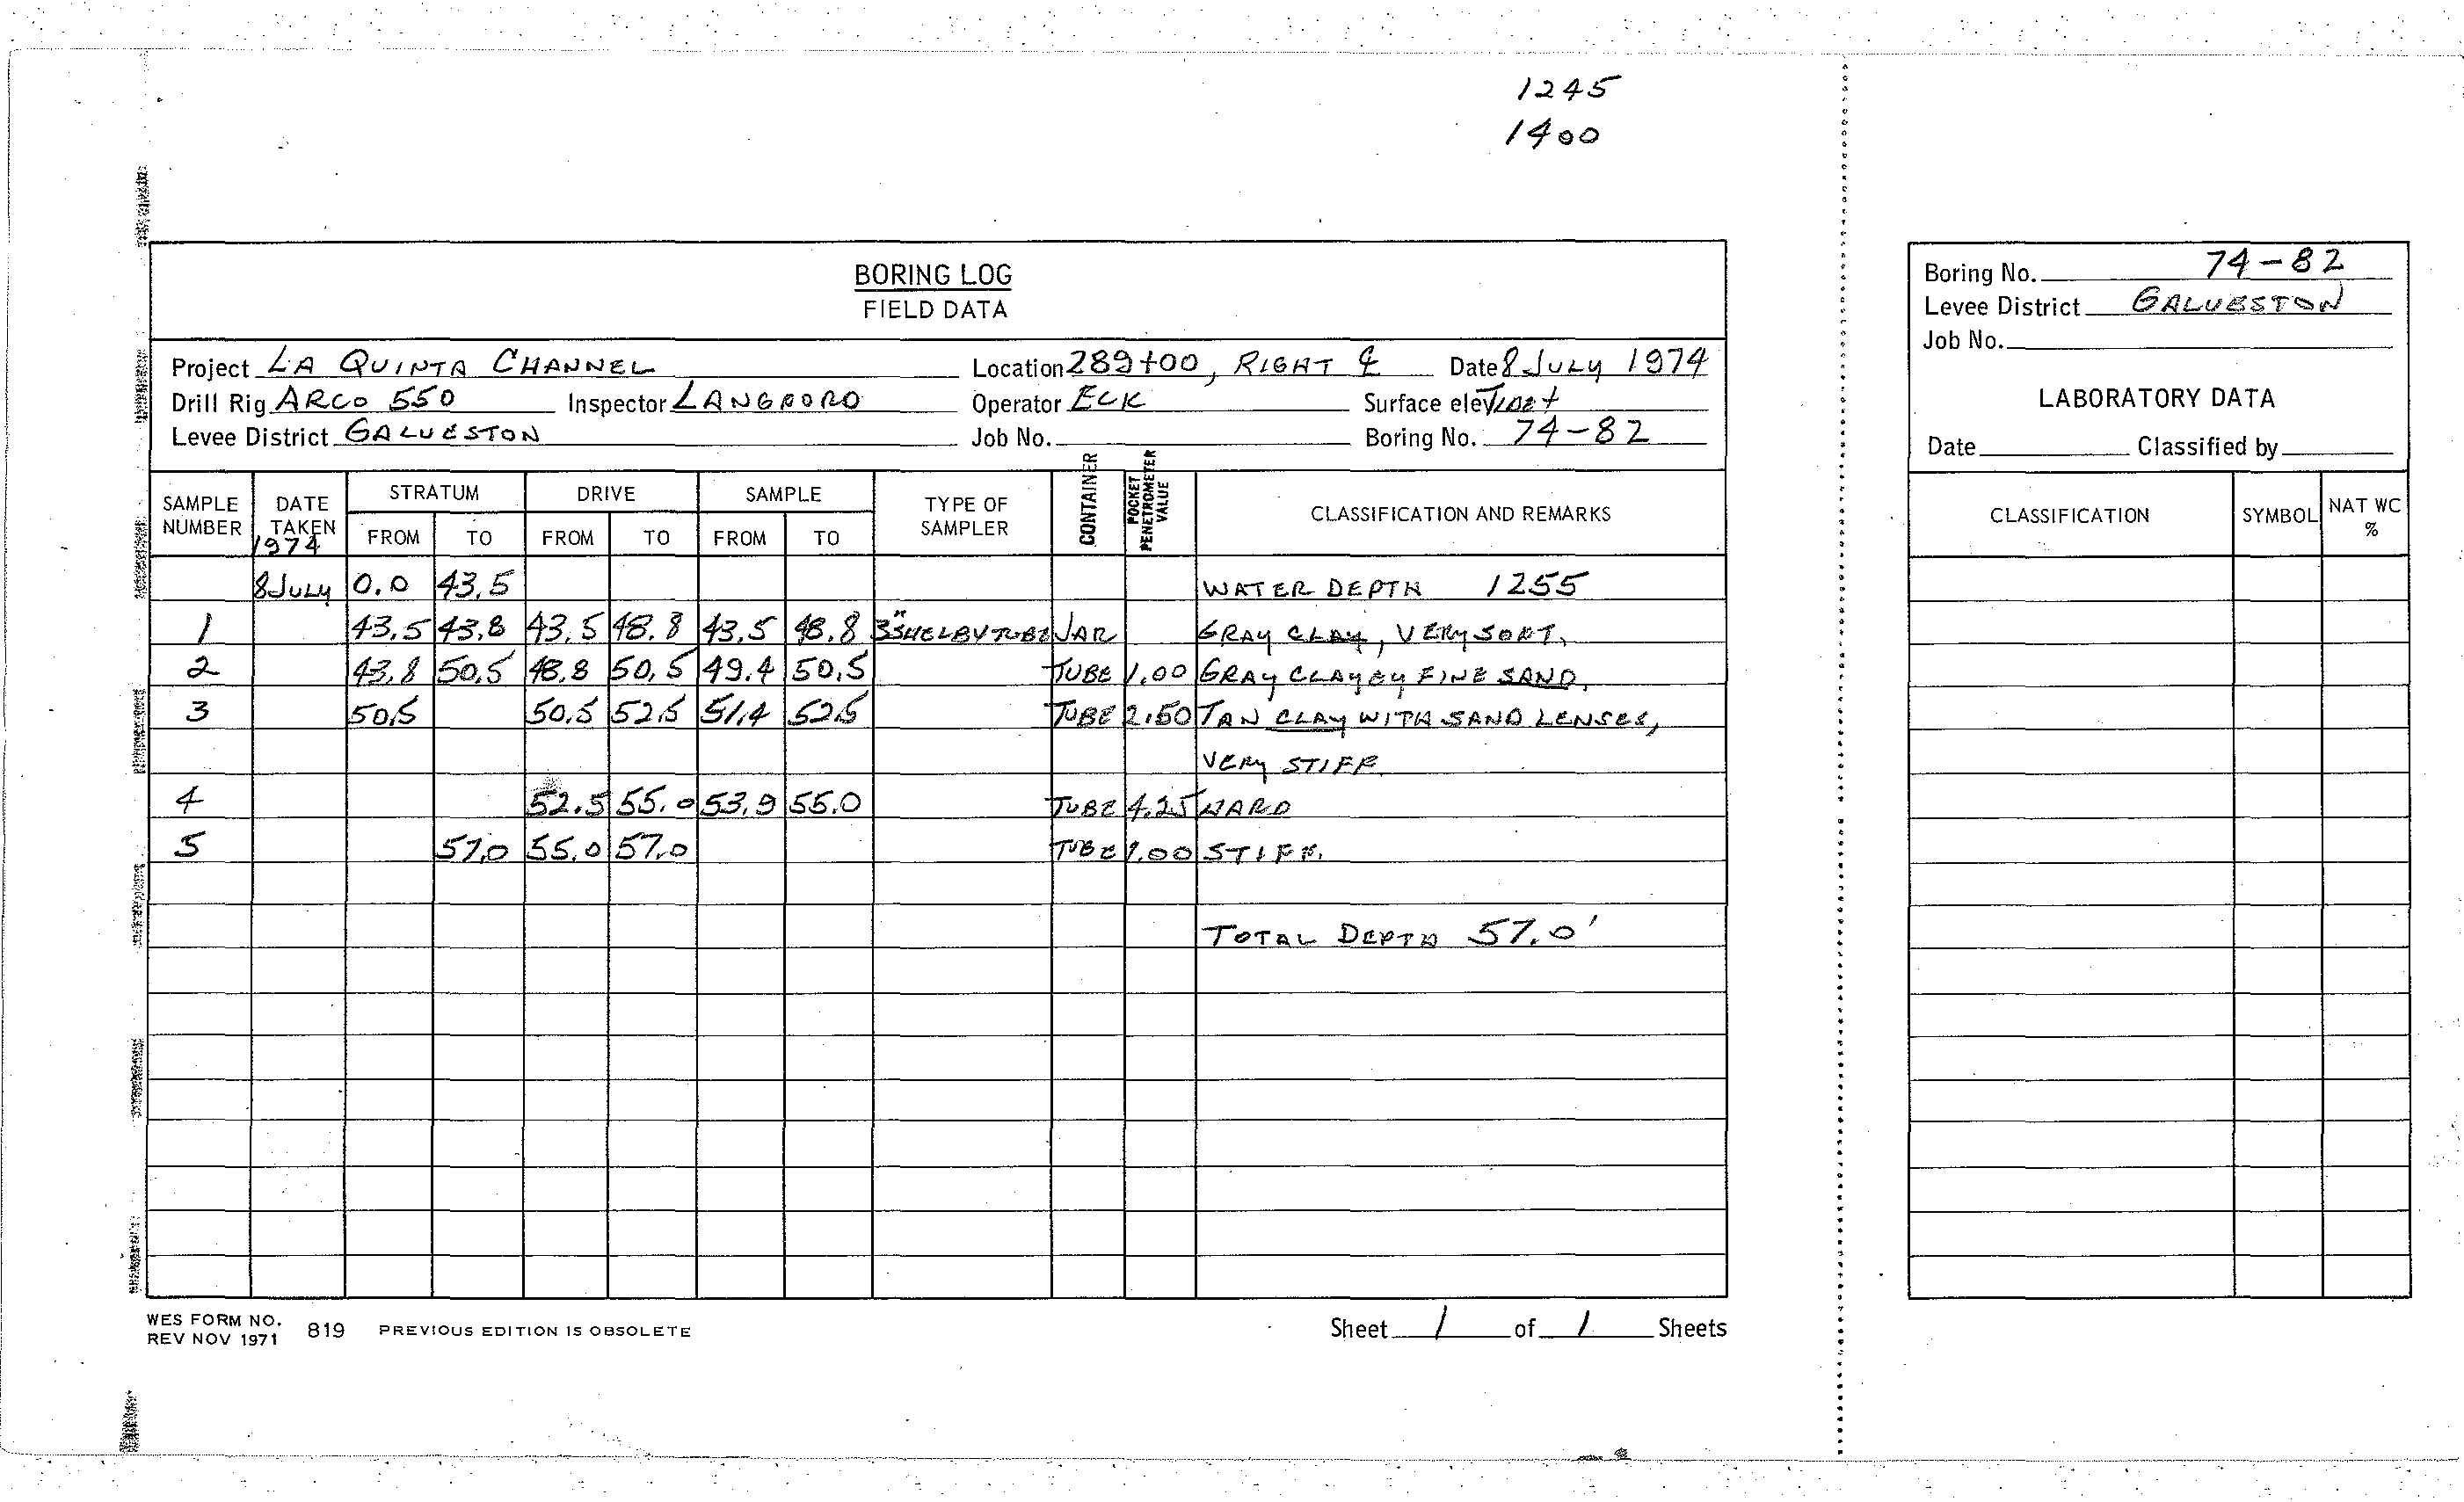 1245
1400
BORING LOG
FIELD DATA
Project LA QUINTA CHANNEL Location 289+00, RIGHT ℄ Date 8 JULY 1974
Drill Rig ARCO 550 Inspector LANGFORD Operator ECK Surface elev
Levee District GALVESTON Job No. Boring No. 74-82
SAMPLE NUMBER DATE TAKEN 1974 STRATUM DRIVE SAMPLE TYPE OF SAMPLER CONTAINER POCKET PENETROMETER VALUE CLASSIFICATION AND REMARKS
FROM TO FROM TO FROM TO
8 JULY 0.0 43.5 WATER DEPTH 1255
1 43.5 43.8 43.5 48.8 43.5 48.8 3" SHELBY TUBE JAR GRAY CLAY, VERY SOFT.
2 43.8 50.5 48.8 50.5 49.4 50.5 TUBE 1.00 GRAY CLAYEY FINE SAND.
3 50.5 50.5 52.5 51.4 52.5 TUBE 2.50 TAN CLAY WITH SAND LENSES,
VERY STIFF
4 52.5 55.0 53.9 55.0 TUBE 4.25 HARD
5 57.0 55.0 57.0 TUBE 1.00 STIFF.
TOTAL DEPTH 57.0'
WES FORM NO. 819 PREVIOUS EDITION IS OBSOLETE
REV NOV 1971
Sheet 1 of 1 Sheets
Boring No. 74-82
Levee District GALVESTON
Job No.
LABORATORY DATA
Date Classified by
CLASSIFICATION SYMBOL NAT WC %